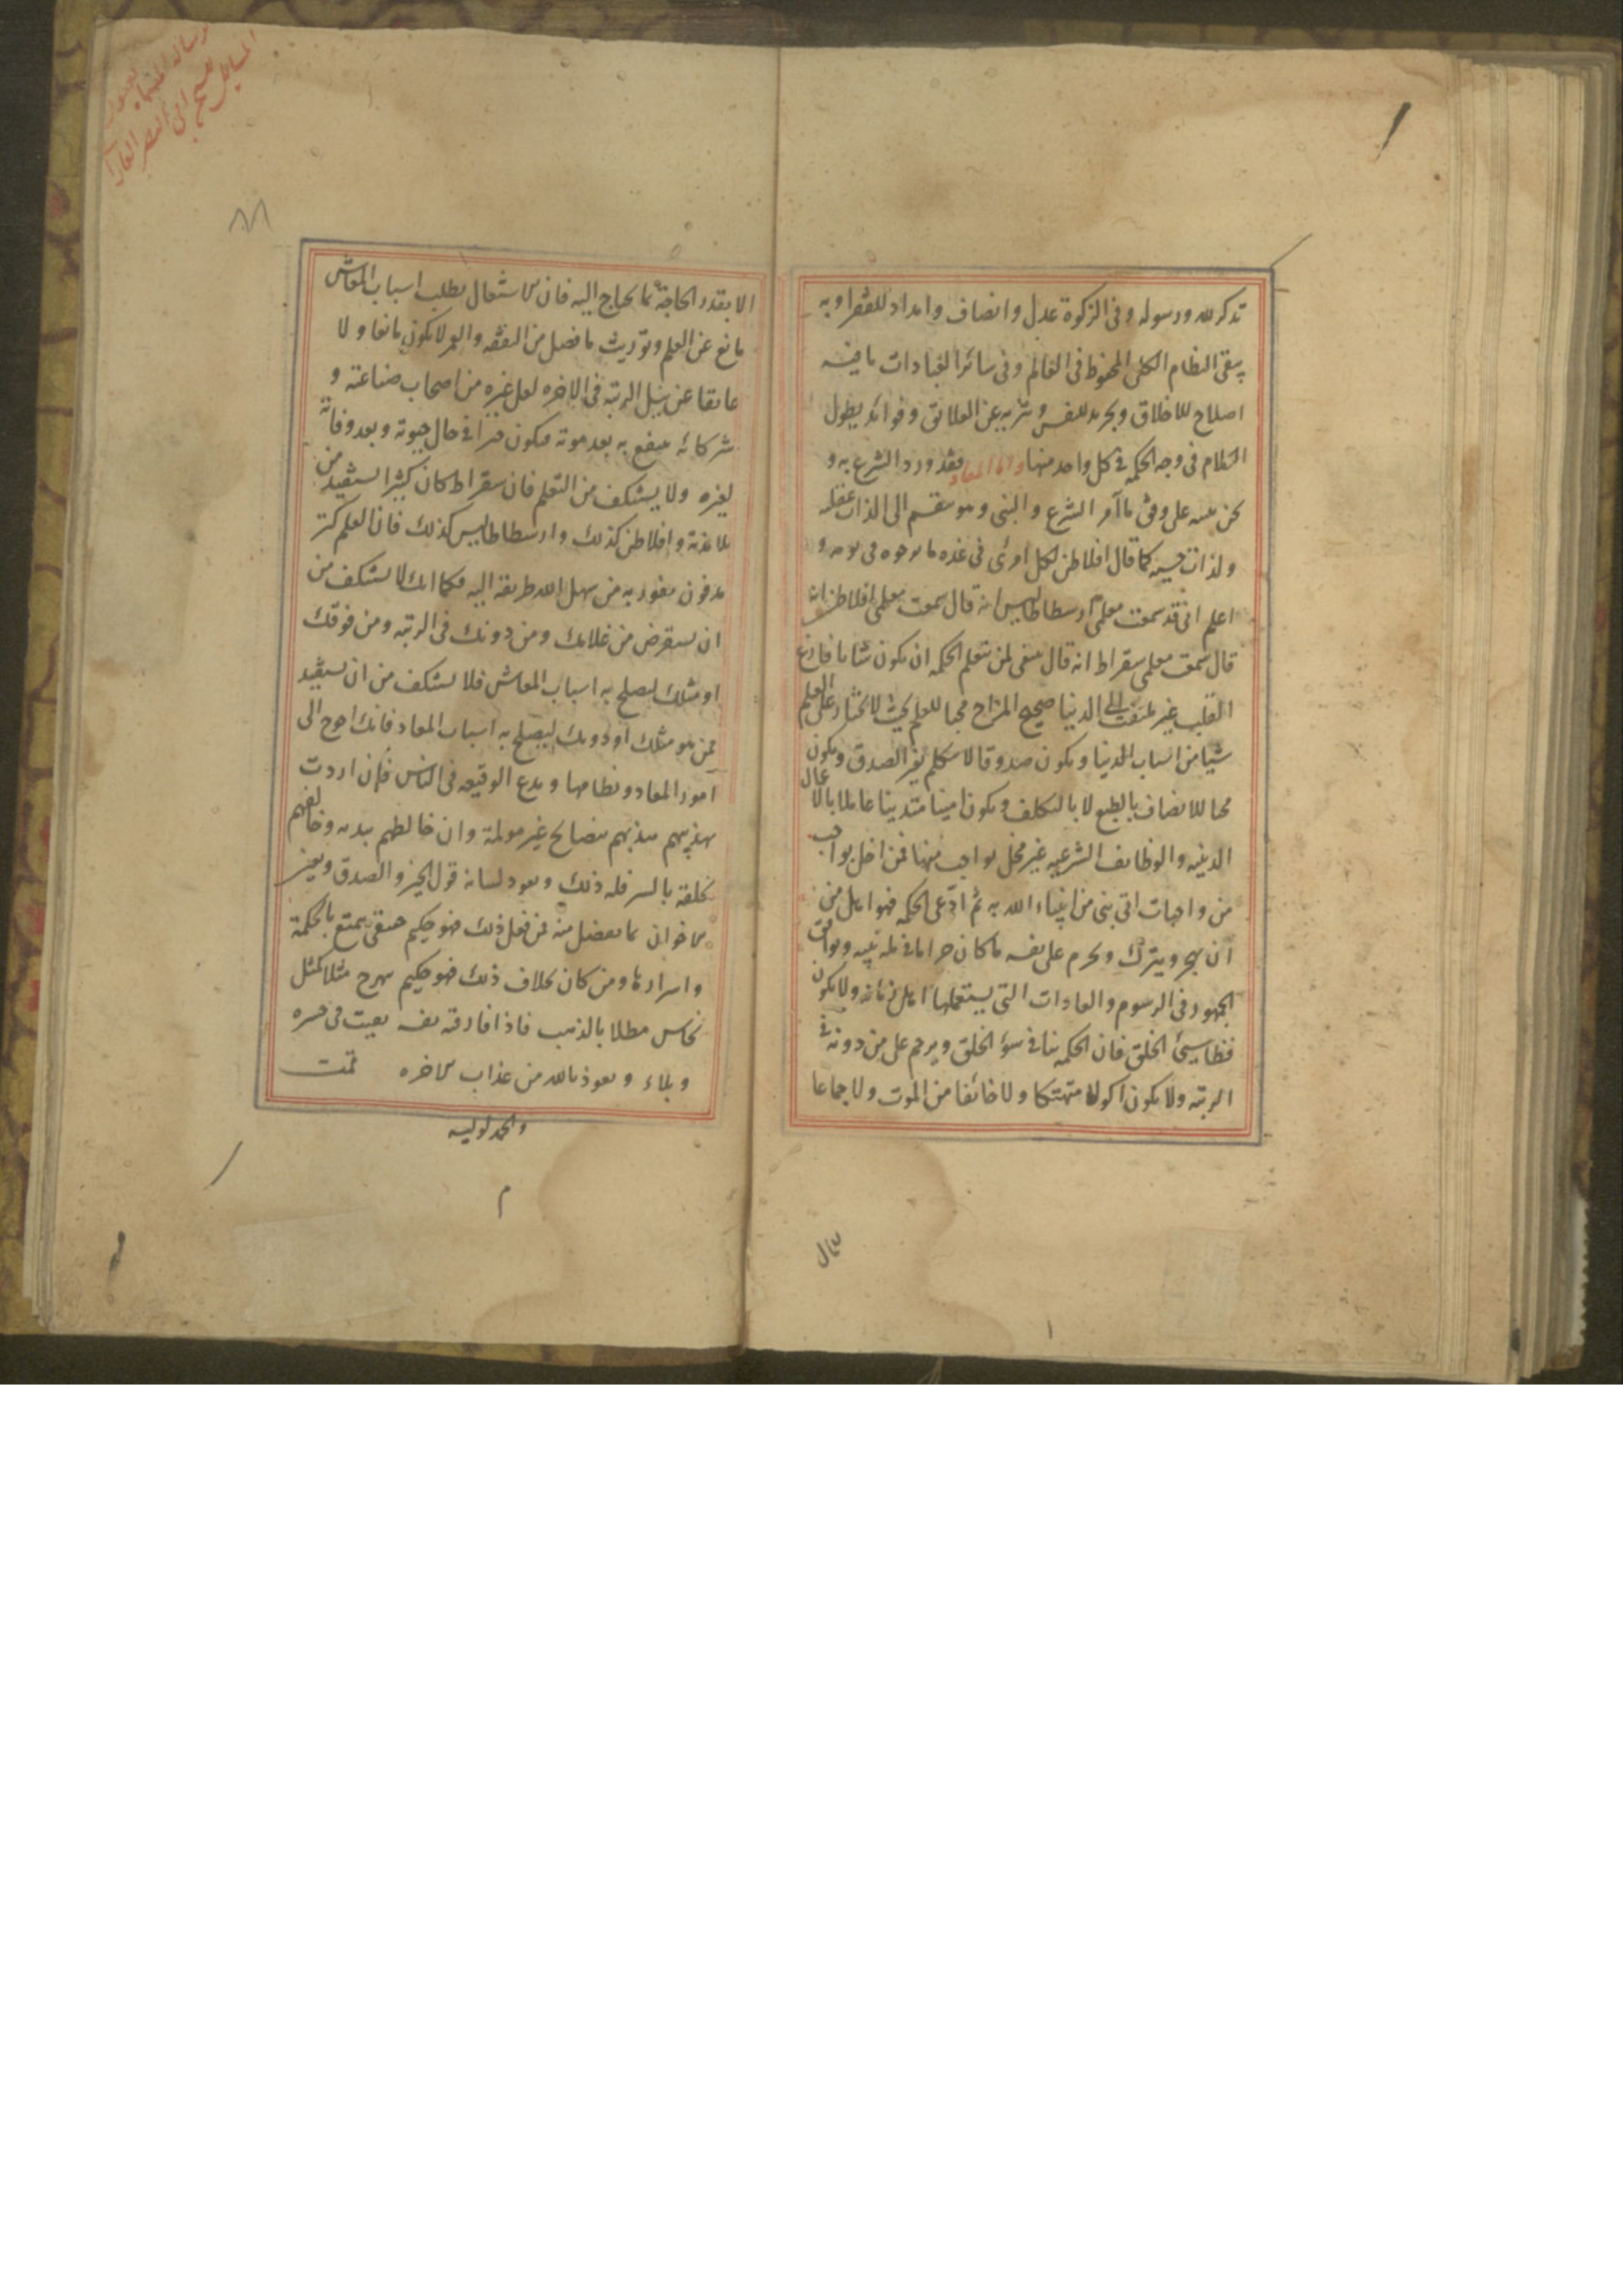 تذكر لله ورسوله وفى الزكوة عدل وانصاف وامداد للفقرا وبه
يبقى النظام الكلى المحفوظ فى العالم وفى سائر العبادات ما فيه
اصلاح للاخلاق وتجريد للنفس وتنزيه عن العلائق وفوائد يطول
الكلام فى وجه الحكمة فى كل واحد منها واما المعاد فقد ورد الشرع به و
نحن على وفق ما امر الشرع والنبى وهو منقسم الى لذات عقلية
ولذات حسية كما قال افلاطن لكل امرئ فى غده ما يرجوه فى يومه و
اعلم انى قد سمعت معلمى ارسطاطاليس انه قال سمعت معلمى افلاطن انه
قال سمعت معلمى سقراط انه قال ينبغى لمن يتعلم الحكمة ان يكون شابا فارغ
القلب غير ملتفت الى الدنيا صحيح المزاج محبا للعلم بحيث لا يختار على العلم
شيا من اسباب الدنيا ويكون صدوقا لا يتكلم بغير الصدق ويكون
محبا للانصاف بالطبع لا بالتكلف ويكون امينا متدينا عاملا بالاعمال
الدينيه والوظايف الشرعيه غير مخل بواجب منها فمن اخل بواجب
من واجبات اتى نبى من انبياء الله به ثم ادعى الحكمه فهو اهل من
ان يهجر ويترك ويحرم على نفسه ما كان حراما فى ملة نبيه ويوافق
الجمهور فى الرسوم والعادات التى يستعملها اهل زمانه ولا يكون
فظا سيئ الخلق فان الحكمه تنافى سوء الخلق ويرحم على من دونه فى
الرتبه ولا يكون اكولا متهتكا ولا خائفا من الموت ولا جماعا
للمال
الا بقدر الحاجة بما يحتاج اليه فان الاشتغال بطلب اسباب المعاش
مانع عن العلم وتوريث ما فضل من النفقه والعمر لا يكون مانعا ولا
عايقا عن نيل الرتبة فى الاخره لعل غيره من اصحاب صناعته و
شركائه ينتفع به بعد موته فيكون خيرا فى حال حيوته وبعد وفاته
لغيره ولا يستنكف من التعلم فان سقراط كان كثيرا يستفيد من
تلامذته وافلاطن كذلك وارسطاطاليس كذلك فان العلم كنز
مدفون يفوز به من سهل الله طريقه اليه فكما انك لا تستنكف من
ان تستقرض من غلامك ومن دونك فى الرتبه ومن فوقك
او مثلك ليصلح به اسباب المعاش فلا تستنكف من ان تستفيد
ممن هو مثلك او دونك ليصلح به اسباب المعاد فانك احوج الى
امور المعاد ونظامها ويدع الوقيعه فى الناس فان اردت
تهذيبهم بنصائح غير مولمة وان خالطهم ببدنه وخالفهم
بخلقه بالسر فله ذلك ويعود لسانه قول الخير والصدق ويعين
الاخوان بما يفضل منه فمن فعل ذلك فهو حكيم حقيقى يمتع بالحكمة
واسرارها ومن كان بخلاف ذلك فهو حكيم بهرج مثلا كمثل
نحاس مطلا بالذهب فاذا فارقته نفسه بقيت فى حسره
وبلاء ونعوذ بالله من عذاب الاخره تمت
والحمد لوليه
م